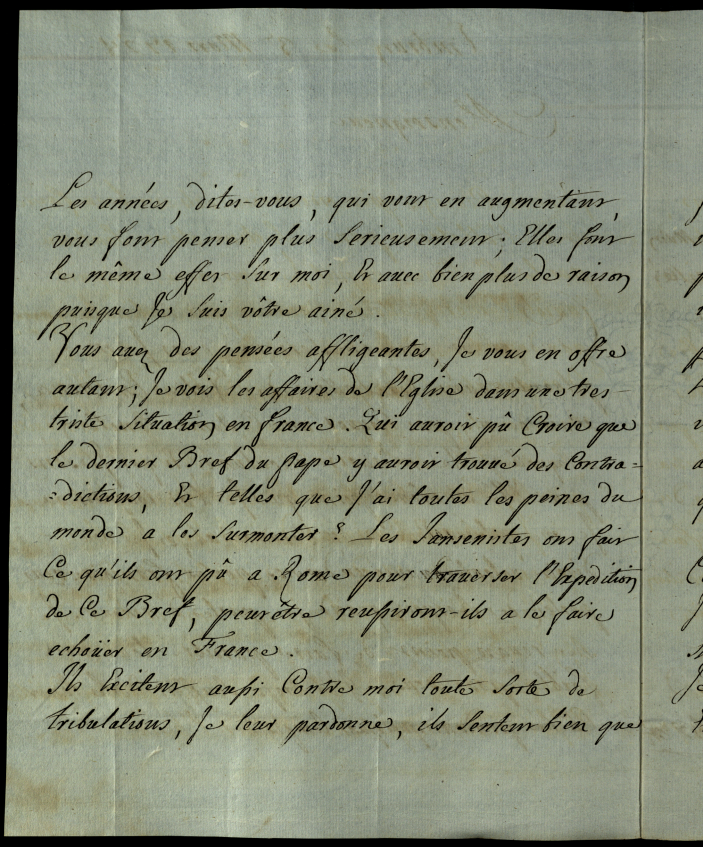 Les années, dites-vous, qui vont en augmentant,
vous font penser plus serieusement; Elles font
le même effet sur moi, Et avec bien plus de raison
puisque Je suis vôtre ainé.
Vous avez des pensées affligeantes, Je vous en offre
autant; Je vois les affaires de l'Eglise dans une tres
triste situation en france. Qui auroit pû Croire que
le dernier Bref du pape y auroit trouvé des Contra=
=dictions, Et telles que J'ai toutes les peines du
monde a les surmonter? Les Jansenistes ont fait
Ce qu'ils ont pû a Rome pour traverser l'Expedition
de Ce Bref, peutêtre reussiront-ils a le faire
echoüer en France.
Ils Excitent aussi Contre moi toute sorte de
tribulations, Je leur pardonne, ils sentent bien que